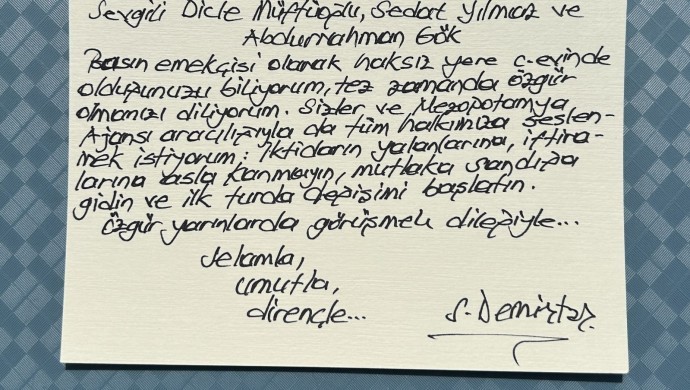 Sevgili Dicle Müftüoğlu, Sedat Yılmaz ve
Abdurrahman Gök
Basın emekçisi olarak haksız yere c.evinde
olduğunuzu biliyorum, tez zamanda özgür
olmanızı diliyorum. Sizler ve Mezopotamya
Ajansı aracılığıyla da tüm halkımıza seslen-
mek istiyorum: İktidarın yalanlarına, iftira-
larına asla kanmayın, mutlaka sandığa
gidin ve ilk turda değişimi başlatın.
Özgür yarınlarda görüşmek dileğiyle...
Selamla,
umutla,
dirençle...
S. Demirtaş